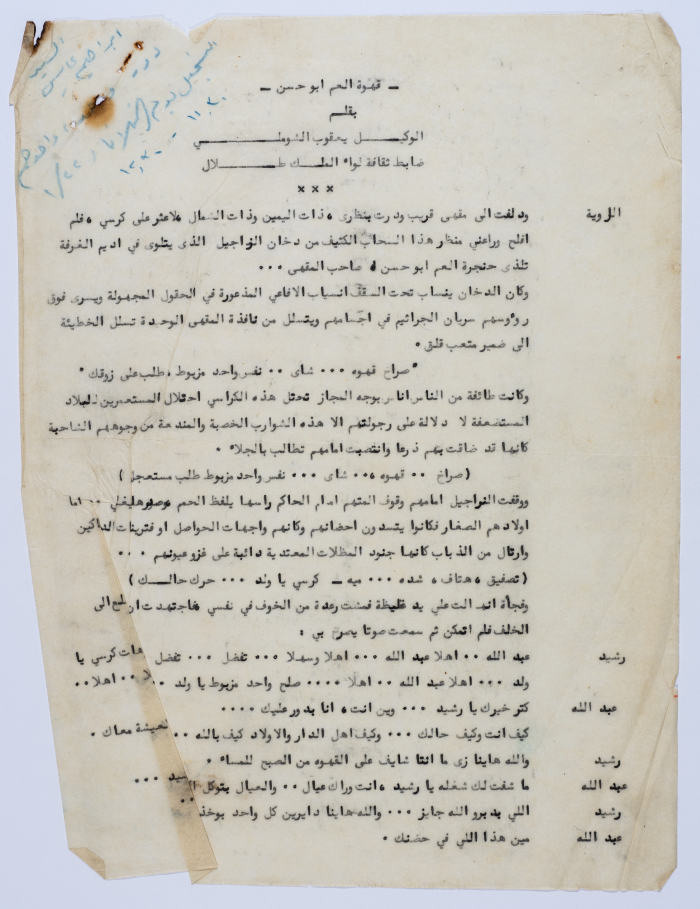 ـ قهوة العم ابو حسن ـ
بقلم
الوكيل يعقوب الشوملي
ضابط ثقافة لواء الملك طلال
×××
الراوية ودلفت الى مقهى قريب ودرت بنظري ، ذات اليمين وذات الشمال لاعثر على كرسي ، فلم
افلح وراعني منظار هذا السحاب الكثيف من دخان النراجيل الذى يتلوى في اديم الغرفة
تلذى حنجرة العم ابو حسن ، صاحب المقهى ...
وكان الدخان ينساب تحت السقف انسياب الافاعي المذعورة في الحقول المجهولة ويسرى فوق
رؤوسهم سريان الجراثيم في اجسامهم ويتسلل من نافذة المقهى الوحيدة تسلل الخطيئة
الى ضمير متعب قلق .
"صراخ قهوه ... شاى .. نفس واحد مزبوط ، طلب على زوقك"
وكانت طائفة من الناس اناس بوجه المجاز تحتل هذه الكراسي احتلال المستعمرين للبلاد
المستضعفة لا دلالة على رجولتهم الا هذه الشوارب الخصبة والمندفعة من وجوههم الشاحبة
كانها قد ضاقت بهم ذرعا وانتصبت امامهم تطالب بالجلاء .
(صراخ .. قهوه ،.. شاى ... نفس واحد مزبوط طلب مستعجل)
ووقفت النراجيل امامهم وقوف المتهم امام الحاكم راسها يلفظ الحمم وصدرها يغلي .. اما
اولادهم الصغار فكانوا يتسدون احضانهم وكانهم واجهات الحواصل او فترينات الدكاكين
وارتال من الذباب كانها جنود المظلات المعتدية دائبة على غزو عيونهم ...
(تصفيق ، هتاف ، شده ... ميه ـ كرسي يا ولد ... حرك حالك)
وفجأة انهالت علي يد غليظة فمشت رعدة من الخوف في نفسي فاجتهدت ان الى
الخلف فلم اتمكن ثم سمعت صوتا يصرخ بي :
رشيد عبد الله .. اهلا عبد الله ... اهلا وسهلا ... تفضل ... تفضل هات كرسي يا
ولد ... اهلا عبد الله .. اهلا .... صلح واحد مزبوط يا ولد ... اهلا ..
عبد الله كتر خيرك يا رشيد ... وين انت ، انا بدور عليك ....
كيف انت وكيف حالك ... وكيف اهل الدار والاولاد كيف بالله .. العيشة معاك .
رشيد والله هاينا زى ما انتا شايف على القهوه من الصبح للمساء .
عبد الله ما شفت لك شغله يا رشيد ، انت وراك عيال .. والعيال بتوكل ...
رشيد اللي بدبرو الله جايز ... والله هاينا دايرين كل واحد بوخذ ..
عبد الله مين هذا اللي في حضنك .